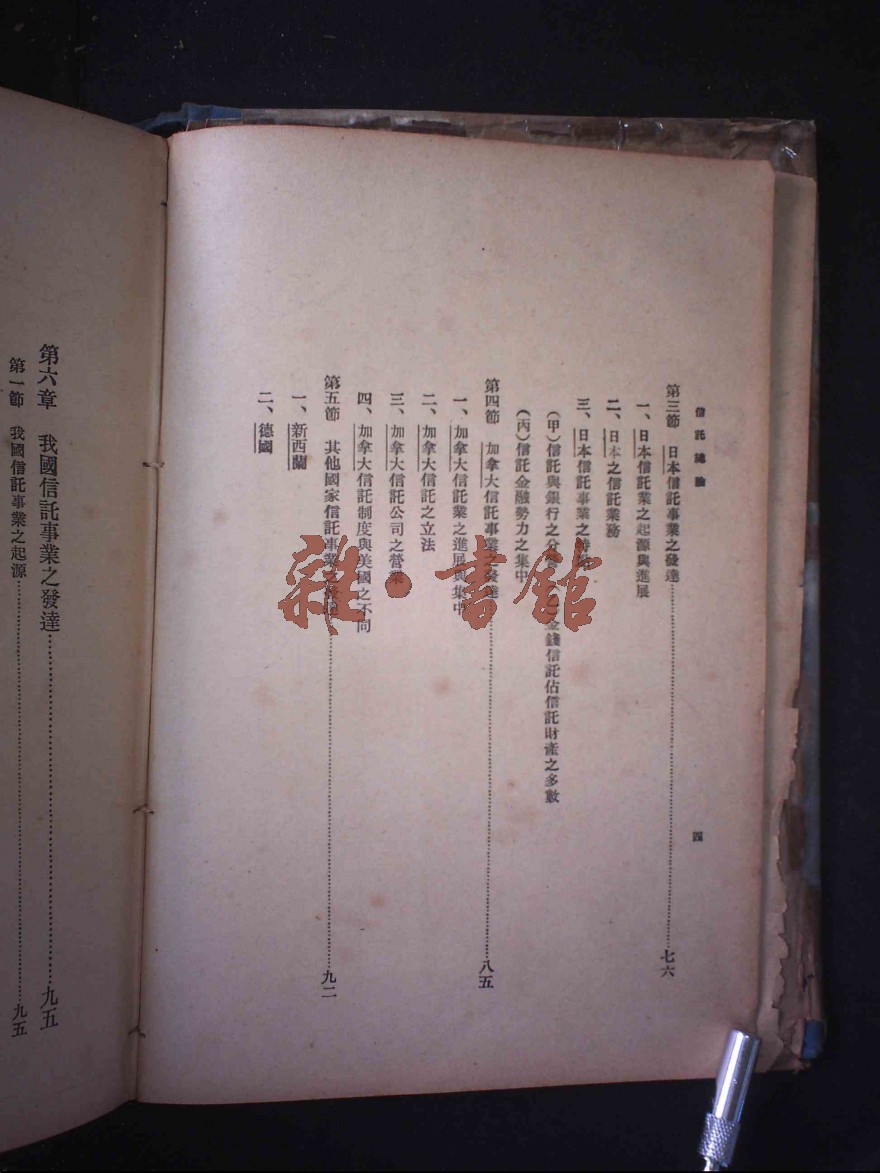 信託總論
四
第三節　日本信託事業之發達……七六
一、日本信託業之起源與進展
二、日本之信託業務
三、日本信託事業之
(甲)信託與銀行之分 金錢信託佔信託財產之多數
(丙)信託金融勢力之集中
第四節　加拿大信託事業之發達……八五
一、加拿大信託業之進展與集中
二、加拿大信託之立法
三、加拿大信託公司之營業
四、加拿大信託制度與美國之不同
第五節　其他國家信託事業之……九二
一、新西蘭
二、德國
第六章　我國信託事業之發達……九五
第一節　我國信託事業之起源……九五
雜·書館